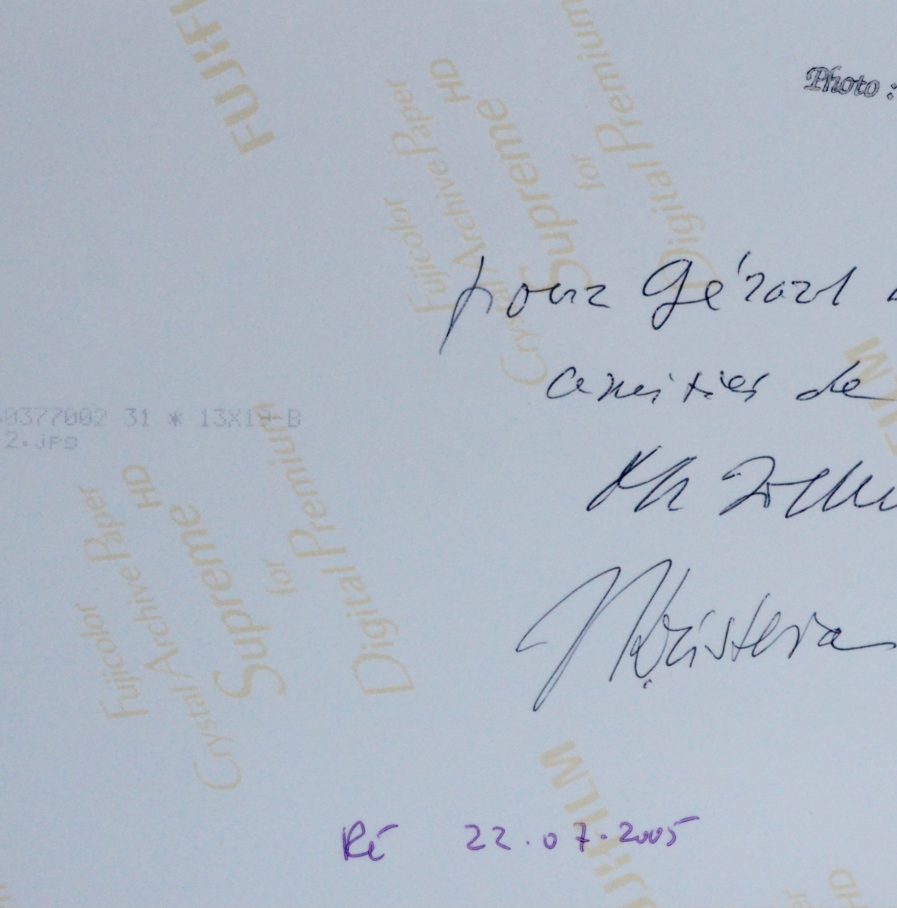 Photo :
pour Gérard
amitiés de
Ph Soller
JKristeva
Ré 22.07.2005
0377002 31 * 13X19-B
2.jpg
FUJIF
Fujicolor Paper
Crystal Archive Paper HD
Supreme
for
Digital Premium
Fujicolor Paper
Crystal Archive HD
Supreme
for
Digital Premium
FUJIFILM
HD